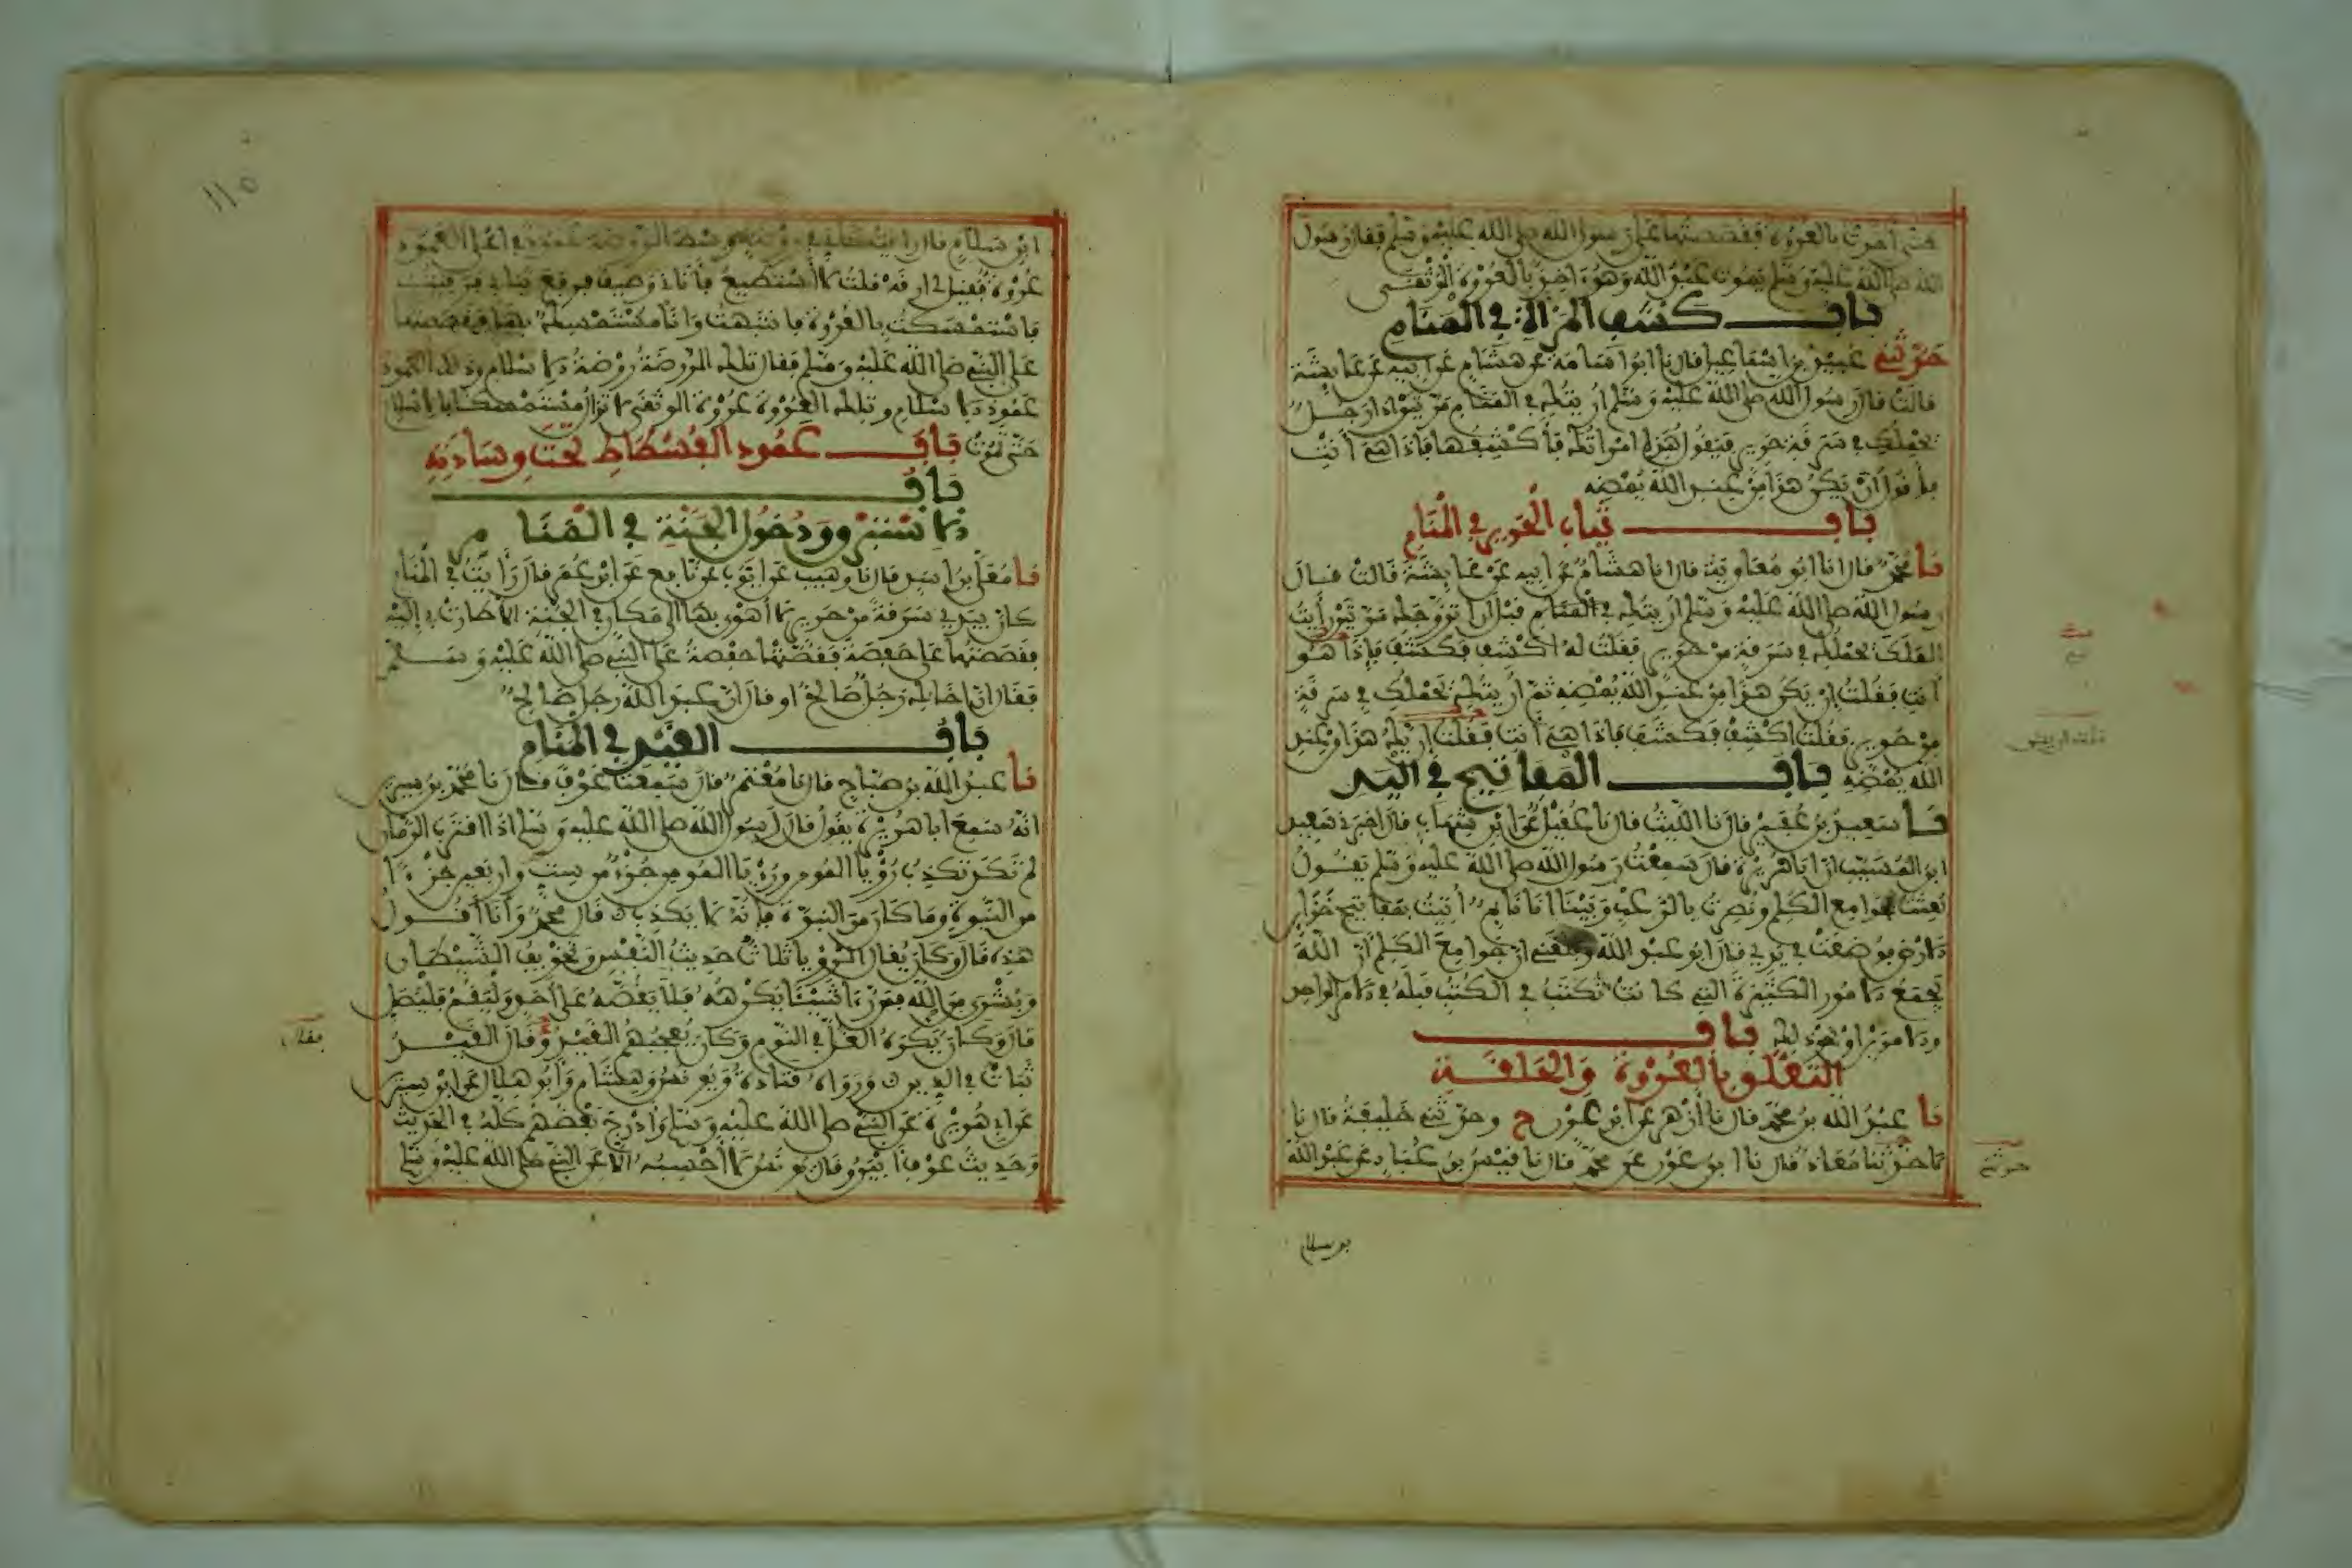 منه أخذت بالعروة فقصصتها على رسول الله صلى الله عليه وسلم فقال رسول
الله صلى الله عليه وسلم يموت عبد الله وهو آخذ بالعروة الوثقى
باب كشف المرأة في المنام
حدثني عبيد بن إسماعيل قال نا أبو أسامة عن هشام عن أبيه عن عائشة
قالت قال رسول الله صلى الله عليه وسلم أريتك في المنام مرتين إذا رجل
يحملك في سرقة حرير فيقول هذه امرأتك فأكشفها فإذا هي أنت
فأقول إن يكن هذا من عند الله يمضه
باب ثياب الحرير في المنام
نا محمد قال انا أبو معاوية قال انا هشام عن أبيه عن عائشة قالت قال
رسول الله صلى الله عليه وسلم أريتك في المنام قبل أن أتزوجك مرتين رأيت
الملك يحملك في سرقة من حرير فقلت له اكشف فكشف فإذا هو
أنت فقلت إن يكن هذا من عند الله يمضه ثم أريتك يحملك في سرقة
من حرير فقلت اكشف فكشف فإذا هي أنت فقلت إن يك هذا من عند
الله يمضه باب المفاتيح في اليد
نا سعيد بن عفير قال نا الليث قال نا عقيل عن ابن شهاب قال أخبرني سعيد
ابن المسيب أن أبا هريرة قال سمعت رسول الله صلى الله عليه وسلم يقول
بعثت بجوامع الكلم ونصرت بالرعب وبينا أنا نائم أتيت بمفاتيح خزائن
الأرض فوضعت في يدي قال أبو عبد الله وبلغني أن جوامع الكلم أن الله
يجمع الأمور الكثيرة التي كانت تكتب في الكتب قبله في الأمر الواحد
والأمرين أو نحو ذلك باب
التعلق بالعروة والحلقة
نا عبد الله بن محمد قال نا أزهر عن ابن عون ح وحدثني خليفة قال نا
حدثنا معاذ قال نا ابن عون عن محمد قال نا قيس بن عباد عن عبد الله
بن سلام
١١٥
ابن سلام قال رأيت كأني في روضة وسط الروضة عمود في أعلى العمود
عروة فقيل لي ارقه قلت لا أستطيع فأتاني وصيف فرفع ثيابي فرقيت
فاستمسكت بالعروة فانتبهت وأنا مستمسك بها فقصصتها
على النبي صلى الله عليه وسلم فقال تلك الروضة روضة الإسلام وذلك العمود
عمود الإسلام وتلك العروة عروة الوثقى لا تزال مستمسكا بالإسلام
حتى تموت باب عمود الفسطاط تحت وسادته
باب
الإستبرق ودخول الجنة في المنام
نا معلى بن أسد قال نا وهيب عن أيوب عن نافع عن ابن عمر قال رأيت في المنام
كأن في يدي سرقة من حرير لا أهوي بها إلى مكان في الجنة إلا طارت بي إليه
فقصصتها على حفصة فقصتها حفصة على النبي صلى الله عليه وسلم
فقال إن أخاك رجل صالح أو قال إن عبد الله رجل صالح
باب القيد في المنام
نا عبد الله بن صباح قال نا معتمر قال سمعت عوفا قال نا محمد بن سيرين
أنه سمع أبا هريرة يقول قال رسول الله صلى الله عليه وسلم إذا اقترب الزمان
لم تكد تكذب رؤيا المومن ورؤيا المومن جزء من ستة وأربعين جزءا
من النبوة وما كان من النبوة فإنه لا يكذب قال محمد وأنا أقول
هذه قال وكان يقال الرؤيا ثلاث حديث النفس وتخويف الشيطان
وبشرى من الله فمن رأى شيئا يكرهه فلا يقصه على أحد وليقم فليصل
قال وكان يكره الغل في النوم وكان يعجبهم القيد وقال القيد
ثبات في الدين ورواه قتادة ويونس وهشام وأبو هلال عن ابن سيرين
عن أبي هريرة عن النبي صلى الله عليه وسلم وأدرج بعضهم كله في الحديث
وحديث عوف أبين وقال يونس لا أحسبه إلا عن النبي صلى الله عليه وسلم